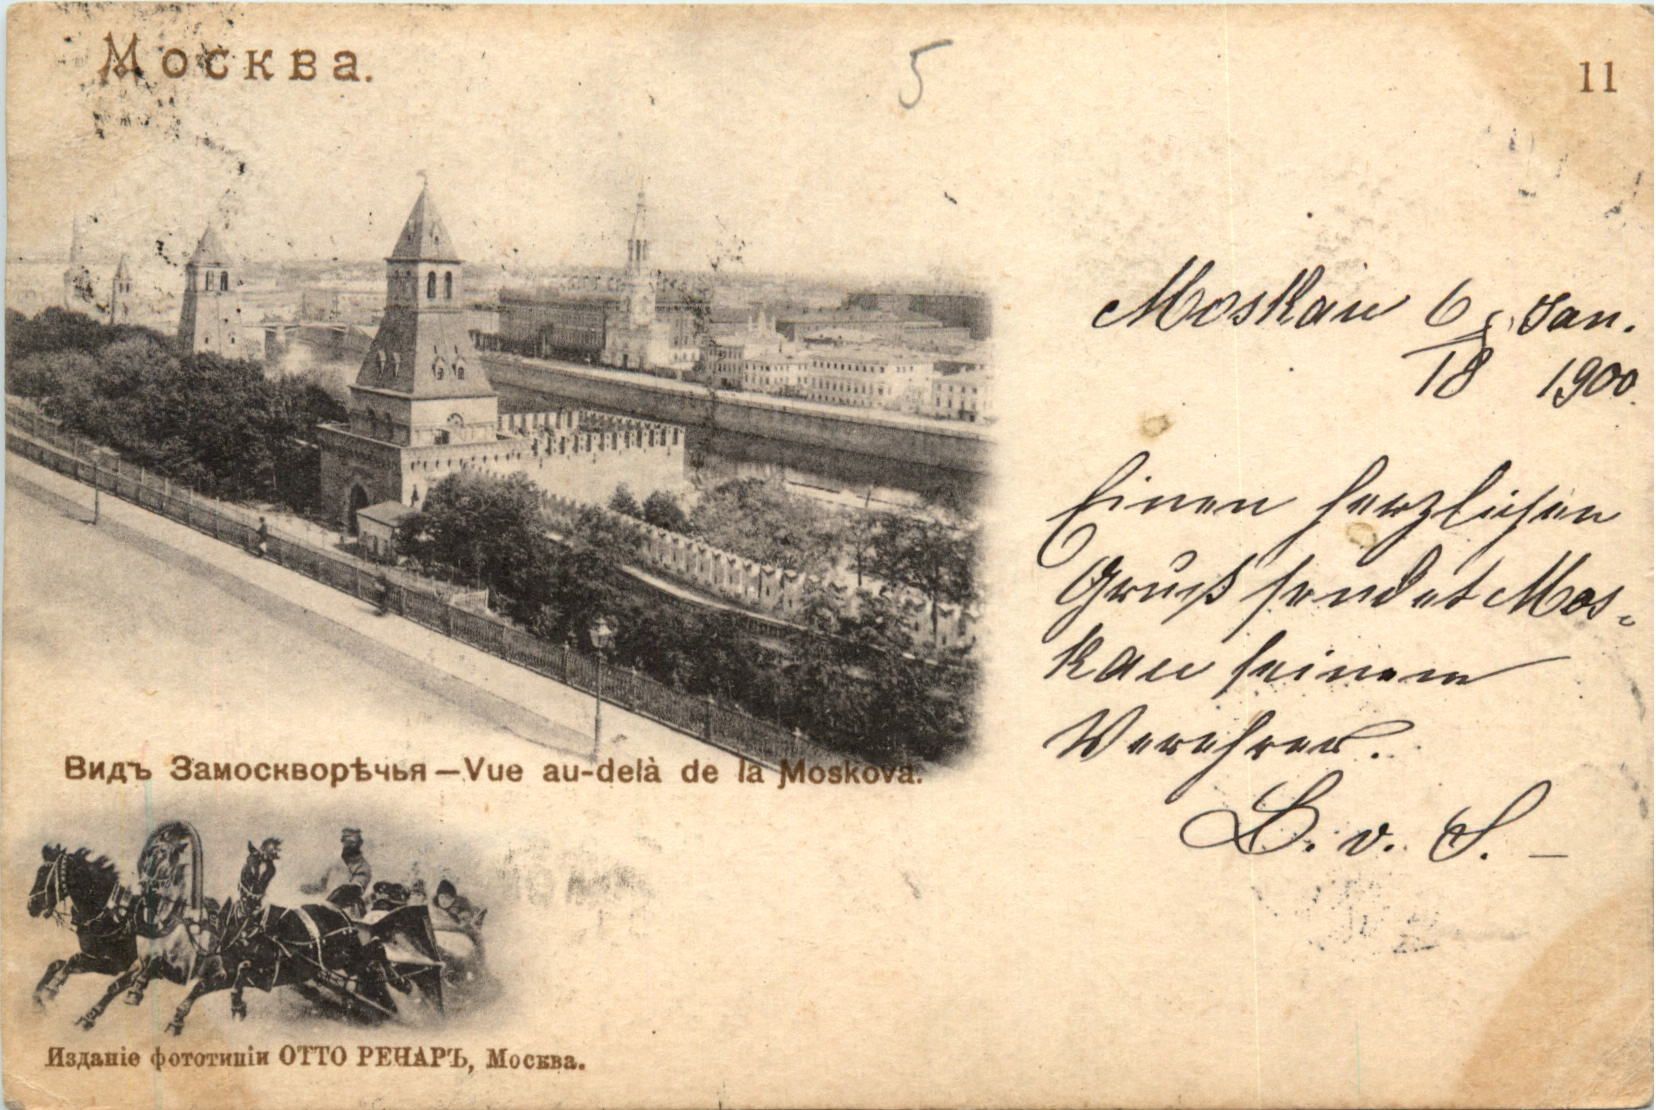 Москва.
5
11
Moskau 6/18 Jan.
1900.
Einen herzlichen
Gruß sendet Mos-
kau seinem
Verehrer.
B. v. S. —
Видъ Замоскворѣчья – Vue au-delà de la Moskova.
Изданіе фототипіи ОТТО РЕНАРЪ, Москва.